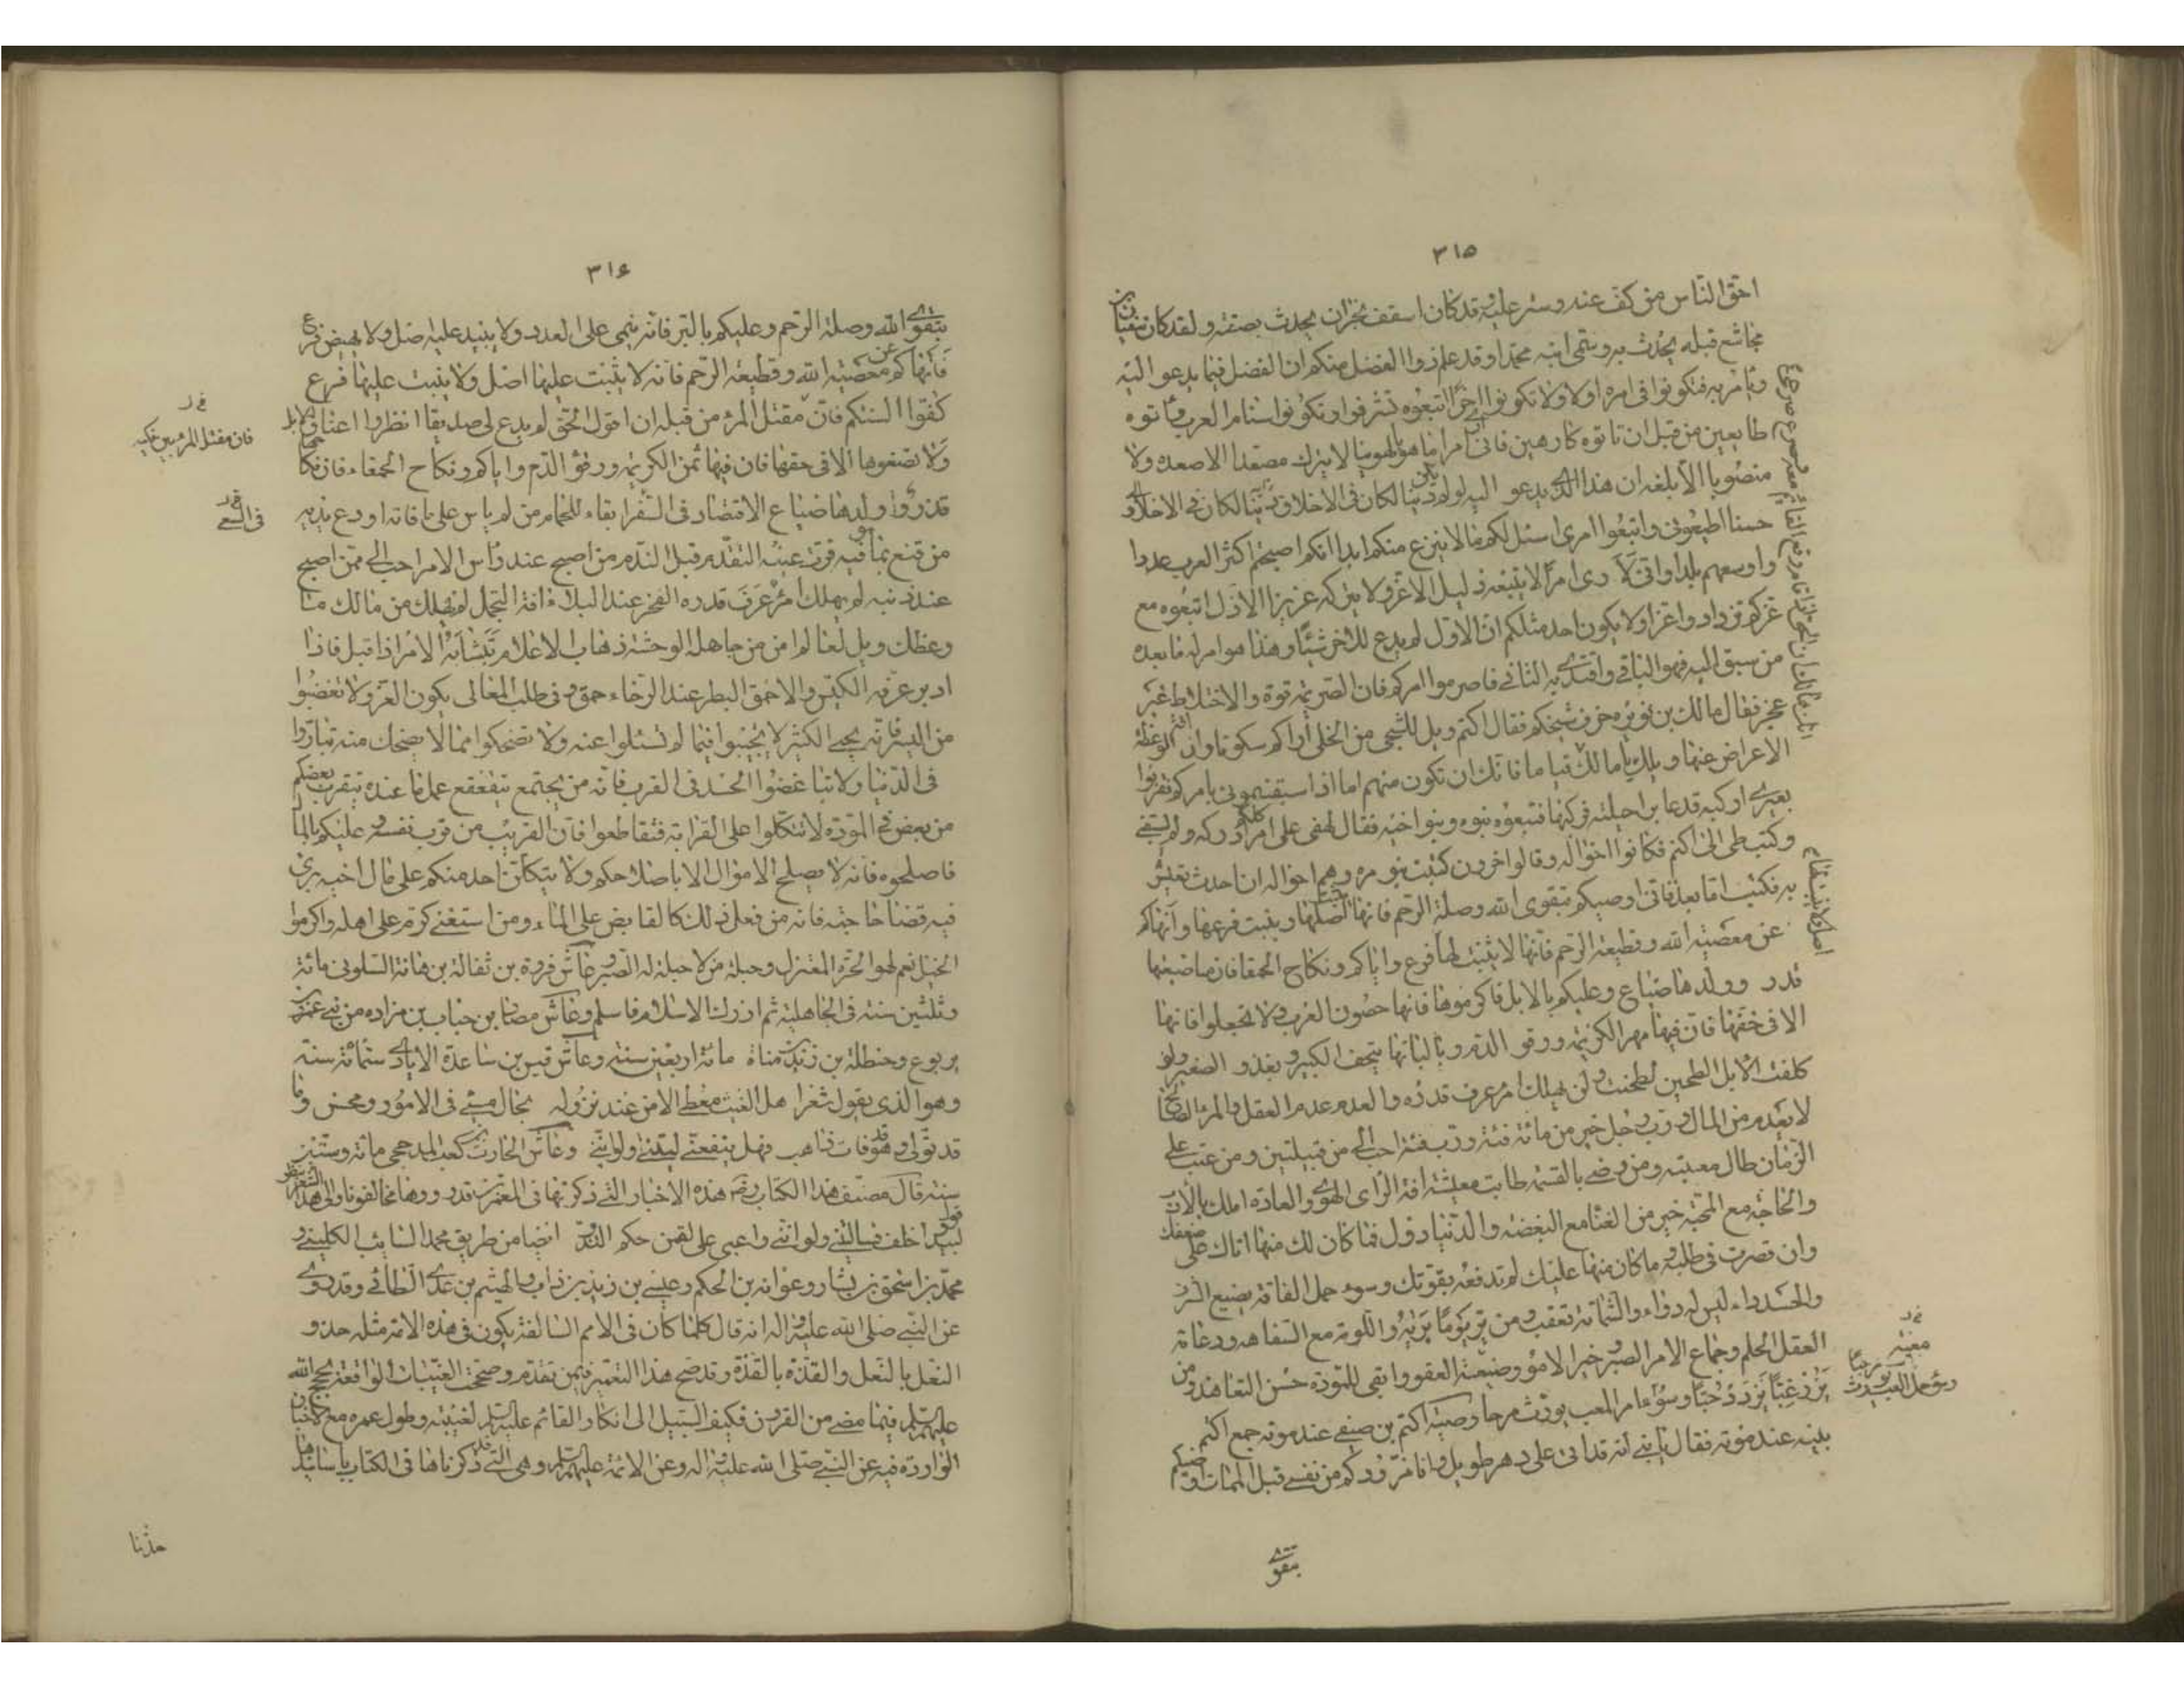 ٣١٥
احق الناس من كف عنه وستر عليه وقد كان اسقف نجران يحدث بصفته ولقد كان سفيان بن
مجاشع قبله يحدث به وسمى ابنه محمدا وقد علم ذوا الفضل منكم ان الفضل فيما يدعو اليه
ويامر به فكونوا فى امره اولا ولا تكونوا اخرا اتبعوه تشرفوا وتكونوا سنام العرب فاتوه
طايعين من قبل ان تاتوه كارهين فانى ارى امرا ما هو بالهوينا لا يترك مصعدا الا صعده ولا
منصوبا الا بلغه ان هذا الذى يدعو اليه لو لم يكن دينا لكان فى الاخلاق
حسنا اطيعونى واتبعوا امرى اسئل لكم ما لا ينزع منكم ابدا انكم اصبحتم اكثر العرب عددا
واوسعهم بلدا وانى لا رى امرا لا يتبعه ذليل الا عز ولا يتركه عزيز الا ذل اتبعوه مع
عزكم تزدادوا عزا ولا يكون احد مثلكم ان الاول لم يدع للاخر شيئا وهذا هو امر له ما بعده
من سبق اليه فهو الباقى واقتدى به الثانى فاصرموا امركم فان الصريمة قوة والاختلاط عجز
فقال مالك بن نويره خرف شيخكم فقال اكثم ويل للشجى من الخلى اراكم سكوتا وان افة الموعظة
الاعراض عنها ويلك يا مالك
بعيرى اركبه فدعا براحلته فركبها فتبعوه بنوه وبنوا اخيه فقال لهفى على امر لم ادركه ولم يسبقنى
وكتب طى الى اكثم فكانوا اخواله وقالوا اخرون كتبت بنو مره وهم اخواله ان احدث
به فكتب اما بعد فانى اوصيكم بتقوى الله وصلة الرحم فانها اصلها وينبت فرعها وانهاكم
عن معصية الله وقطيعة الرحم فانها لا يثبت لها فرع واياكم ونكاح الحمقا فان مباضعتها
قذر وولدها ضياع وعليكم بالابل فاكرموها فانها حصون العرب ولا تضعوا رقابها
الا فى حقها فان فيها مهر الكريمة ورقو الدم وبالبانها يتحف الكبير ويغذو الصغير ولو
كلفت الابل الطحين لطحنت ولن يهلك امرء عرف قدره والعدم عدم العقل والمرء الصالح
لا يعدم من المال ورب رجل خير من مائة فئة ورب فئة احب الى من قبيلتين ومن عتب على
الزمان طال معتبته ومن رضى بالقسم طابت معيشته افة الراى الهوى والعادة املك بالادب
والحاجة مع المحبة خير من الغنا مع البغضه والدنيا دول فما كان لك منها اتاك على ضعفك
وان قصرت فى طلبه وما كان منها عليك لم تدفعه بقوتك وسوء حمل الفاقة يضيع الشرف
والحسد داء ليس له دواء والشماتة تعقب ومن بر يوما بر به واللومة مع السفاهه ودعامة
العقل الحلم وجماع الامر الصبر وخير الامور مغبة العفو وابقى المودة حسن التعاهد ومن
يزر غبا يزدد حبا وصية اكثم بن صيفى عند موته جمع اكثم
بنيه عند موته فقال يا بنى انه قد اتى على دهر طويل وانا مزودكم من نفسى قبل الممات اوصيكم
بتقوى
٣١۶
بتقوى الله وصلة الرحم وعليكم بالبر فانه ينمى على العدد ولا يبيد عليه اصل ولا يهيض فرع
فانهاكم عن معصية الله وقطيعة الرحم فانه لا يثبت عليها اصل ولا ينبت عليها فرع
كفوا السنتكم فان مقتل المرء من قبله ان قول الحق لم يدع لى صديقا انظروا اعناق الابل
ولا تضعوها الا فى حقها فان فيها ثمن الكريمة ورقو الدم واياكم ونكاح الحمقاء فان نكاحها
قذر وولدها ضياع الاقتصاد فى السفر ابقاء للجمام من لم ياس على ما فاته اودع بدنه
من قنع بما هو فيه قرت عينه التقدم قبل الندم من اصبح عند راس الامر احب الى ممن اصبح
عند ذنبه لم يهلك امرء عرف قدره العجز عند البلاء افة التجمل لم يهلك من مالك ما
وعظك ويل لعالم امن من جاهله الوحشة ذهاب الاعلام يتشابه الامر اذا اقبل فاذا
ادبر عرفه الكيس والاحمق البطر عند الرخاء حمق وفى طلب المعالى يكون العز ولا تغضبوا
من اليسير فانه يجنى الكثير لا تجيبوا فيما لم تسئلوا عنه ولا تضحكوا مما لا يضحك منه تباروا
فى الدنيا ولا تباغضوا الحسد فى القرب فانه من يجتمع يتقعقع عمده يتقرب بعضكم
من بعض فى المودة لا تتكلوا على القرابة فتقاطعوا فان القريب من قرب نفسه وعليكم بالمال
فاصلحوه فانه لا يصلح الاموال الا باصلاحكم ولا يتكلن احدكم على مال اخيه يرى
فيه قضا حاجته فانه من فعل ذلك كالقابض على الماء ومن استغنى كرم على اهله واكرموا
الخيل نعم لهو الحرة المغزل وحيلة من لا حيلة له الصبر وعاش فروة بن ثفالة بن نفاثة السلولى مائة
وثلثين سنة فى الجاهلية ثم ادرك الاسلام فاسلم وعاش مضاد بن جناب بن مراره من بنى عمرو بن
يربوع وحنظلة بن زيد مناة مائة اربعين سنة وعاش قيس بن ساعدة الايادى ستمائة سنة
وهو الذى يقول شعرا هل الغيث معطى الامن عند نزوله بحال مسى فى الامور ومحسن وما
قد تولى وهو قد فات ذاهب فهل ينفعنى ليتنى ولو اننى وعاش الحارث بن كعب المدحجى مائة وستين
سنة قال مصنف هذا الكتاب ره هذه الاخبار التى ذكرتها فى المعمرين قد رووها مخالفونا
لبيد اخلف قسا ليتنى ولو اننى واعيى على لقمن حكم التدبر ايضا من طريق محمد السائب الكلبى و
محمد بن اسحق بن بشار وعوانه بن الحكم وعيسى بن زيد بن داب والهيثم بن عدى الطائى وقد روى
عن النبى صلى الله عليه واله انه قال كلما كان فى الامم السالفة يكون فى هذه الامة مثله حذو
النعل بالنعل والقذة بالقذة وقد صح هذا التعمير فيمن تقدم وصحت الغيبات الواقعة بحجج الله
عليهم السلم فيما مضى من القرون فكيف السبيل الى انكار القائم عليه السلم لغيبته وطول عمره مع الاخبار
الواردة فيه عن النبى صلى الله عليه واله وعن الائمة عليهم السلم وهى التى قد ذكرناها فى الكتاب باسانيدها
حدثنا